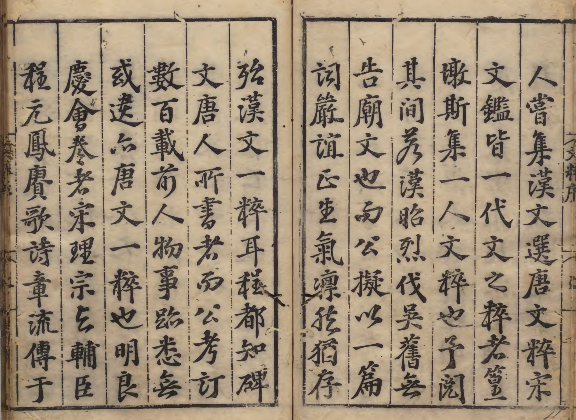 人嘗集漢文選唐文粹宋
文鑑皆一代文之粹者篁
墩斯集一人文粹也予閱
其间若漢昭烈伐吳舊無
告廟文也而公擬以一篇
詞嚴誼正生氣凛然猶存
殆漢文一粹耳程都知碑
文唐人所書者而公考訂
數百載前人物事跡悉無
或遺亦唐文一粹也明良
慶會卷者宋理宗与輔臣
程元鳳賡歌詩章流傳于